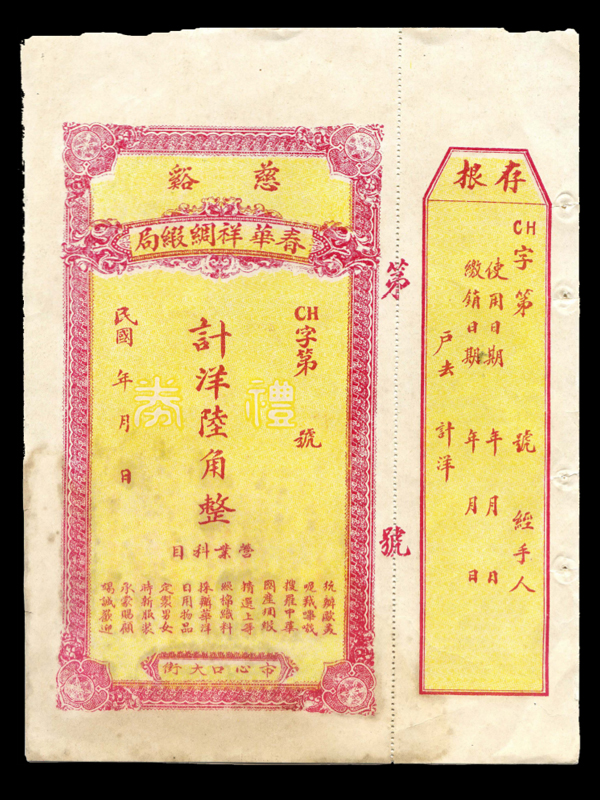 慈谿
春華祥綢緞局
CH字第 號
禮券
計洋陸角整
民國 年 月 日
營業科目
統辦歐美
呢羢嗶嘰
搜羅中華
國產綢緞
精選上等
棉織料
採辦華洋
日用物品
定製男女
時新服裝
承蒙賜顧
竭誠歡迎
市心口大街
第 號
存根
CH字第 號 經手人
使用日期 年 月 日
繳銷日期 年 月 日
戶去 計洋